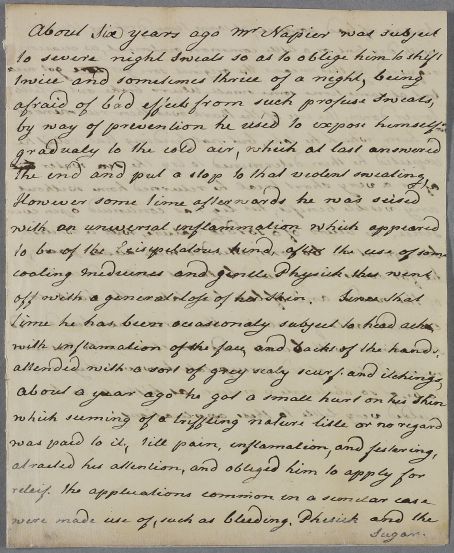 About Six years ago Mr Napier was subject
to severe night Sweats so as to oblige him to shift
twice and sometimes thrice of a night, being
afraid of bad effects from such profuse Sweats,
by way of prevention he used to expose himself
gradualy to the cold air, which at last answered
the end and put a stop to that violent sweating,
However some time afterwards he was seised
with an universal inflammation which appeared
to be of the Erisipelatous kind, after the use of some
cooling medicines and gentle Physick this went
off with a general lose of his Skin. Since that
time he has been occasionaly subject to head achs
with inflamation of the face and backs of the hands,
attended with a sort of grey scaly scurf and itchings,
About a year ago he got a small hurt on his Shin
which seeming of a triffling nature litle or no regard
was paid to it, till pain, inflamation, and festering,
atracted his attention, and obliged him to apply for
releif. the applications common in a similar case
were made use of, such as bleeding, Physick and the
Sugar.